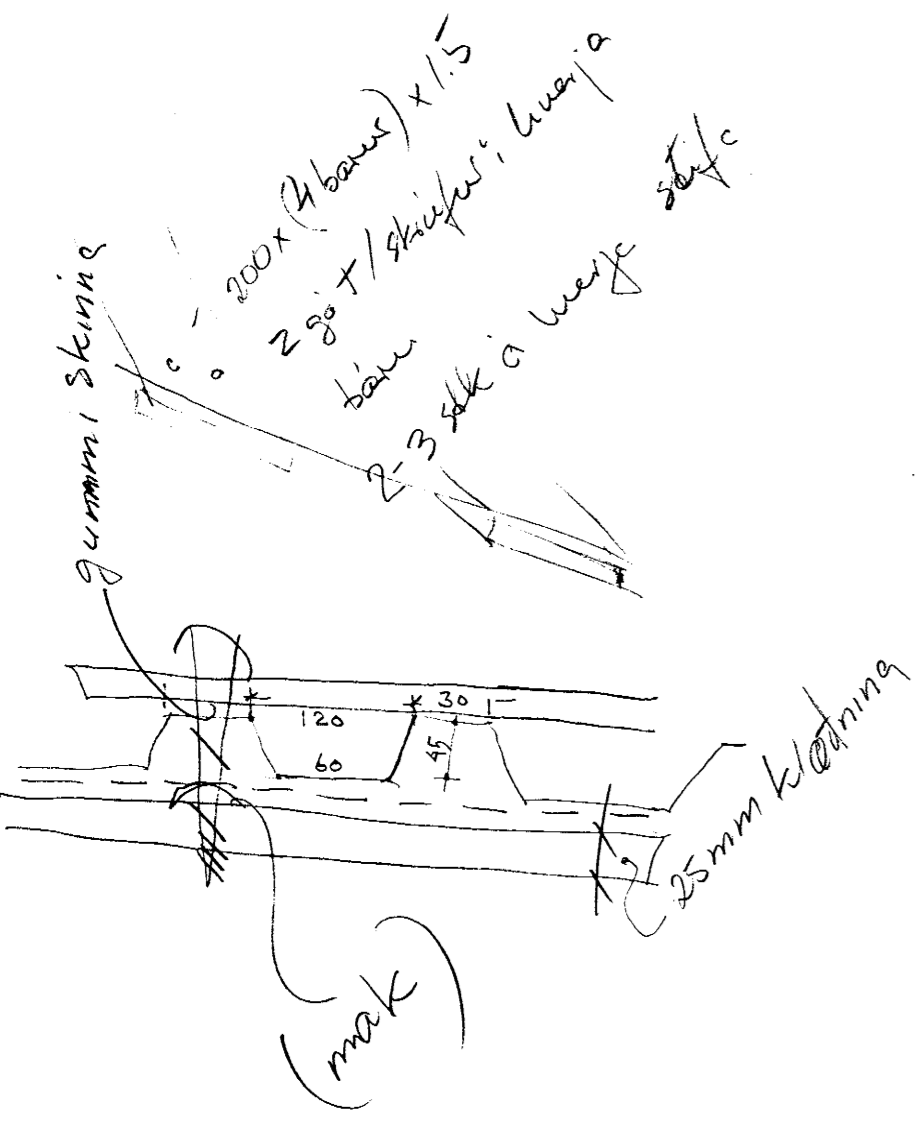 200 x (4 bárur) x 1.5
2 göt / skúfur í hverja
báru
2-3 stk á hverja stífa
gummi skinna
120
30
60
45
25mm klæðning
(mak)